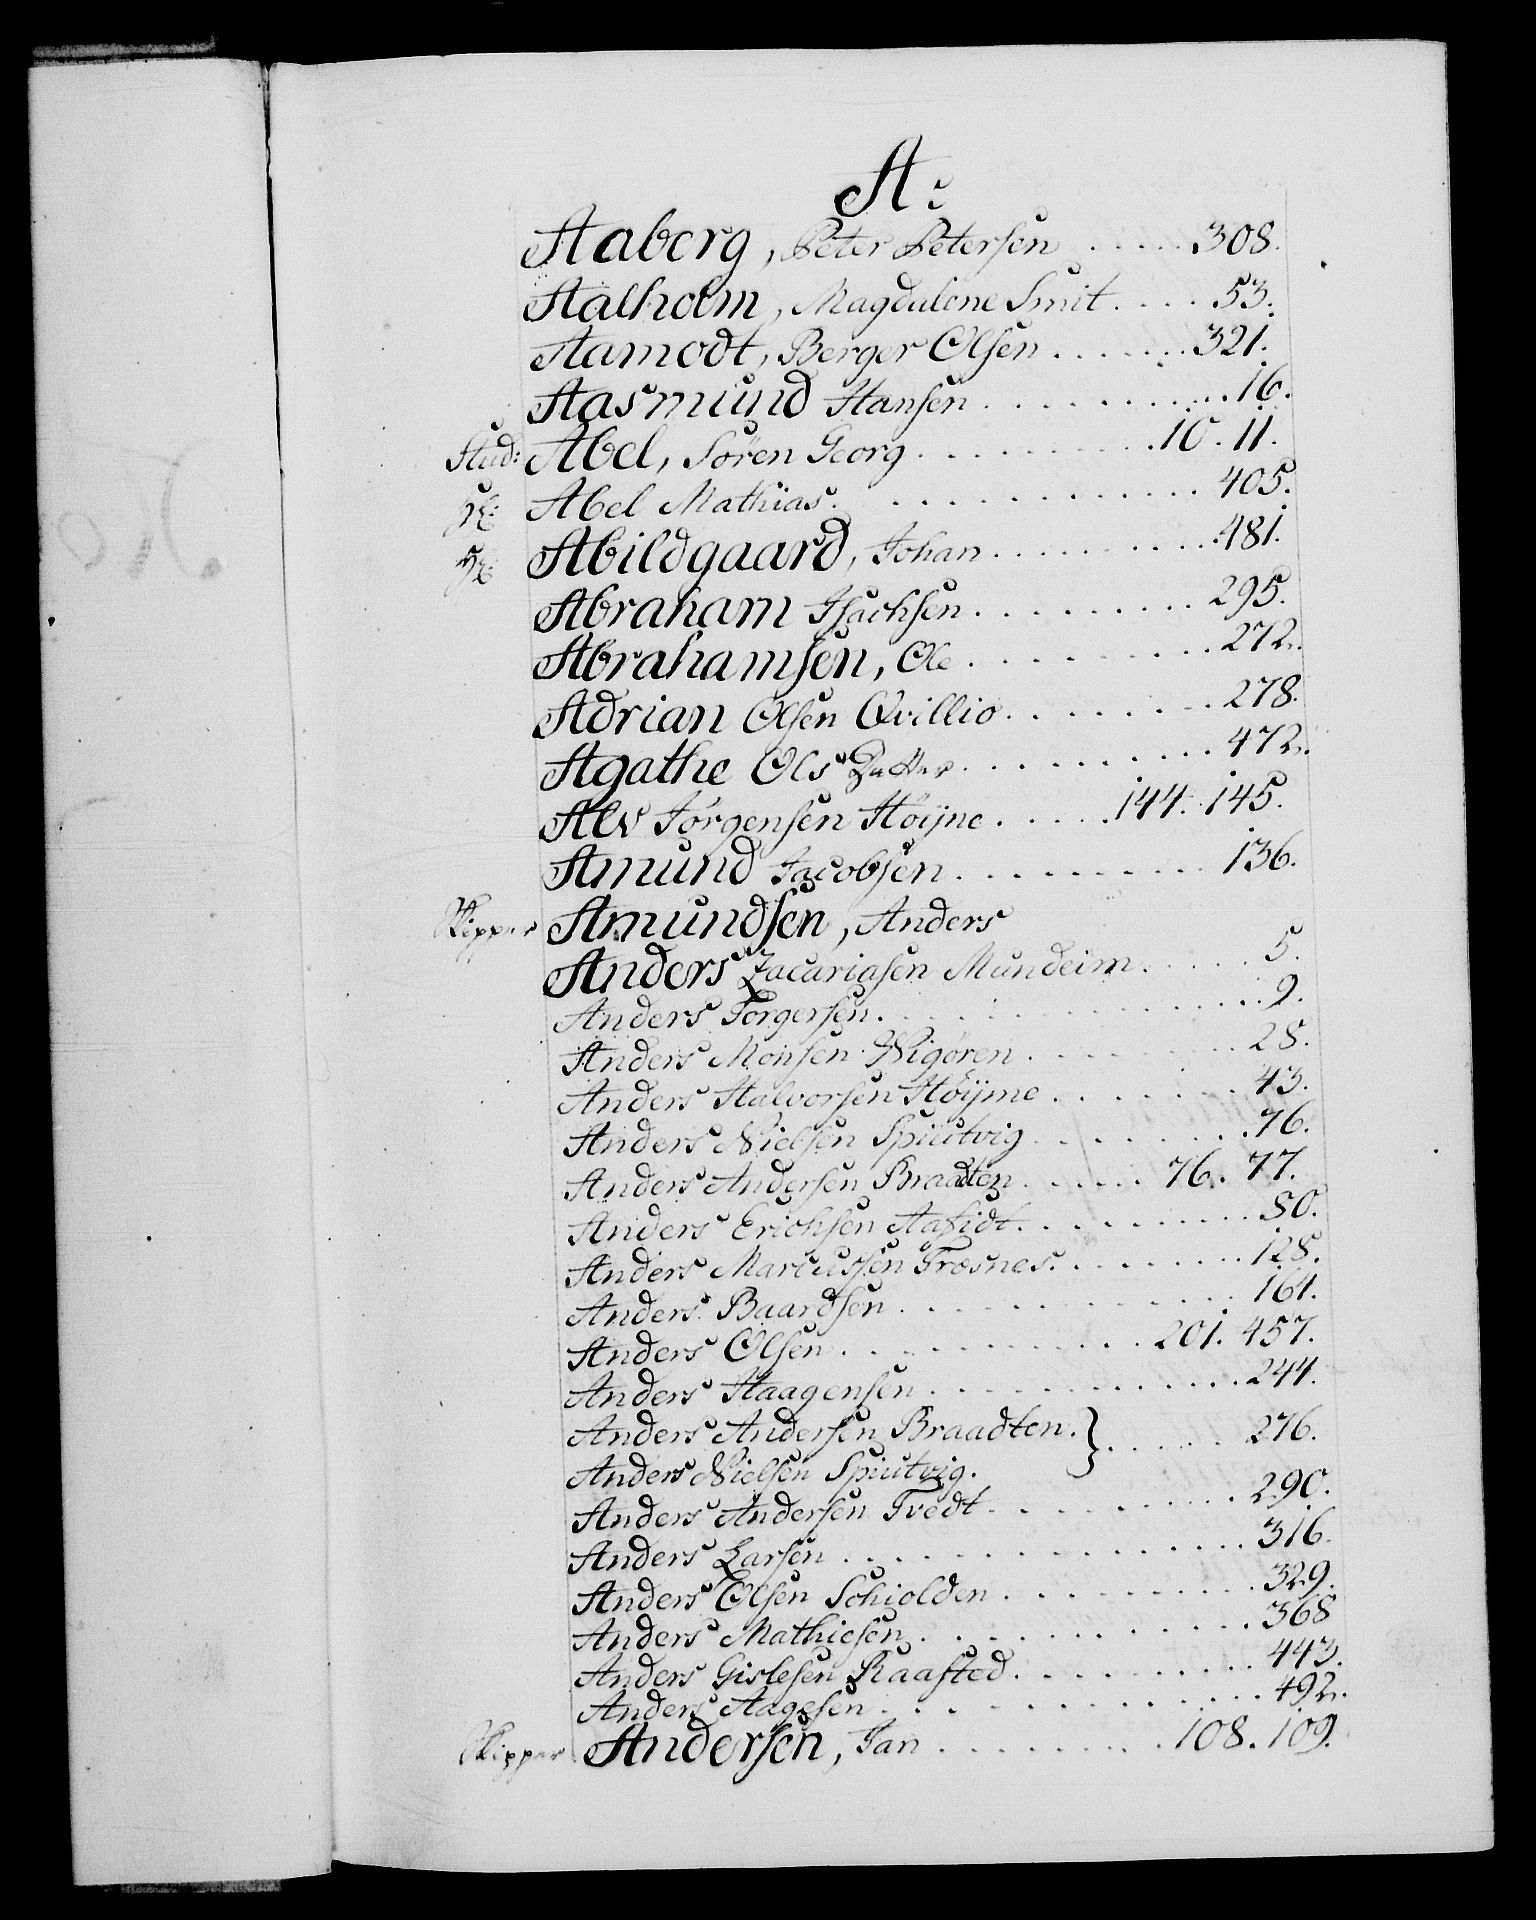 A:
Aaberg, Peter Petersen ..... 308.
Aalholm, Magdalene Smit .... 53.
Aamodt, Berger Olsen ....... 321.
Aasmund Hansen ........... 16.
Stud: Abel, Sören Georg .......... 10. 11.
Hr: Abel Mathias ............ 405.
Hr: Abildgaard, Johan .......... 481.
Abraham Isachsen ......... 295.
Abrahamsen, Ole .......... 272.
Adrian Olsen Qvillio ........ 278.
Agathe Ols Datter .......... 472.
Alv Jörgensen Höijne ..... 144. 145.
Amund Jacobsen .......... 136.
Skipper Amundsen, Anders
Anders Zacariasen Mundeim ..... 5.
Anders Torgersen .............. 9.
Anders Monsen Wigören ........ 28.
Anders Halvorsen Höijme ....... 43.
Anders Nielsen Spiutvig ........ 76.
Anders Andersen Braadten ..... 76. 77.
Anders Erichsen Aafidt .......... 80.
Anders Marcussen Trosnes ........ 128.
Anders Baardsen ............ 164.
Anders Olsen ........... 201. 457.
Anders Haagensen ............ 244.
Anders Andersen Braadten. } ..... 276.
Anders Nielsen Spiutvig.
Anders Andersen Tvedt .......... 290.
Anders Larsen ............... 316.
Anders Olsen Schiolden .......... 329.
Anders Mathiesen ............ 368
Anders Gislesen Raasted .......... 443.
Anders Aagesen .............. 492.
Skipper Andersen, Jan ......... 108. 109.